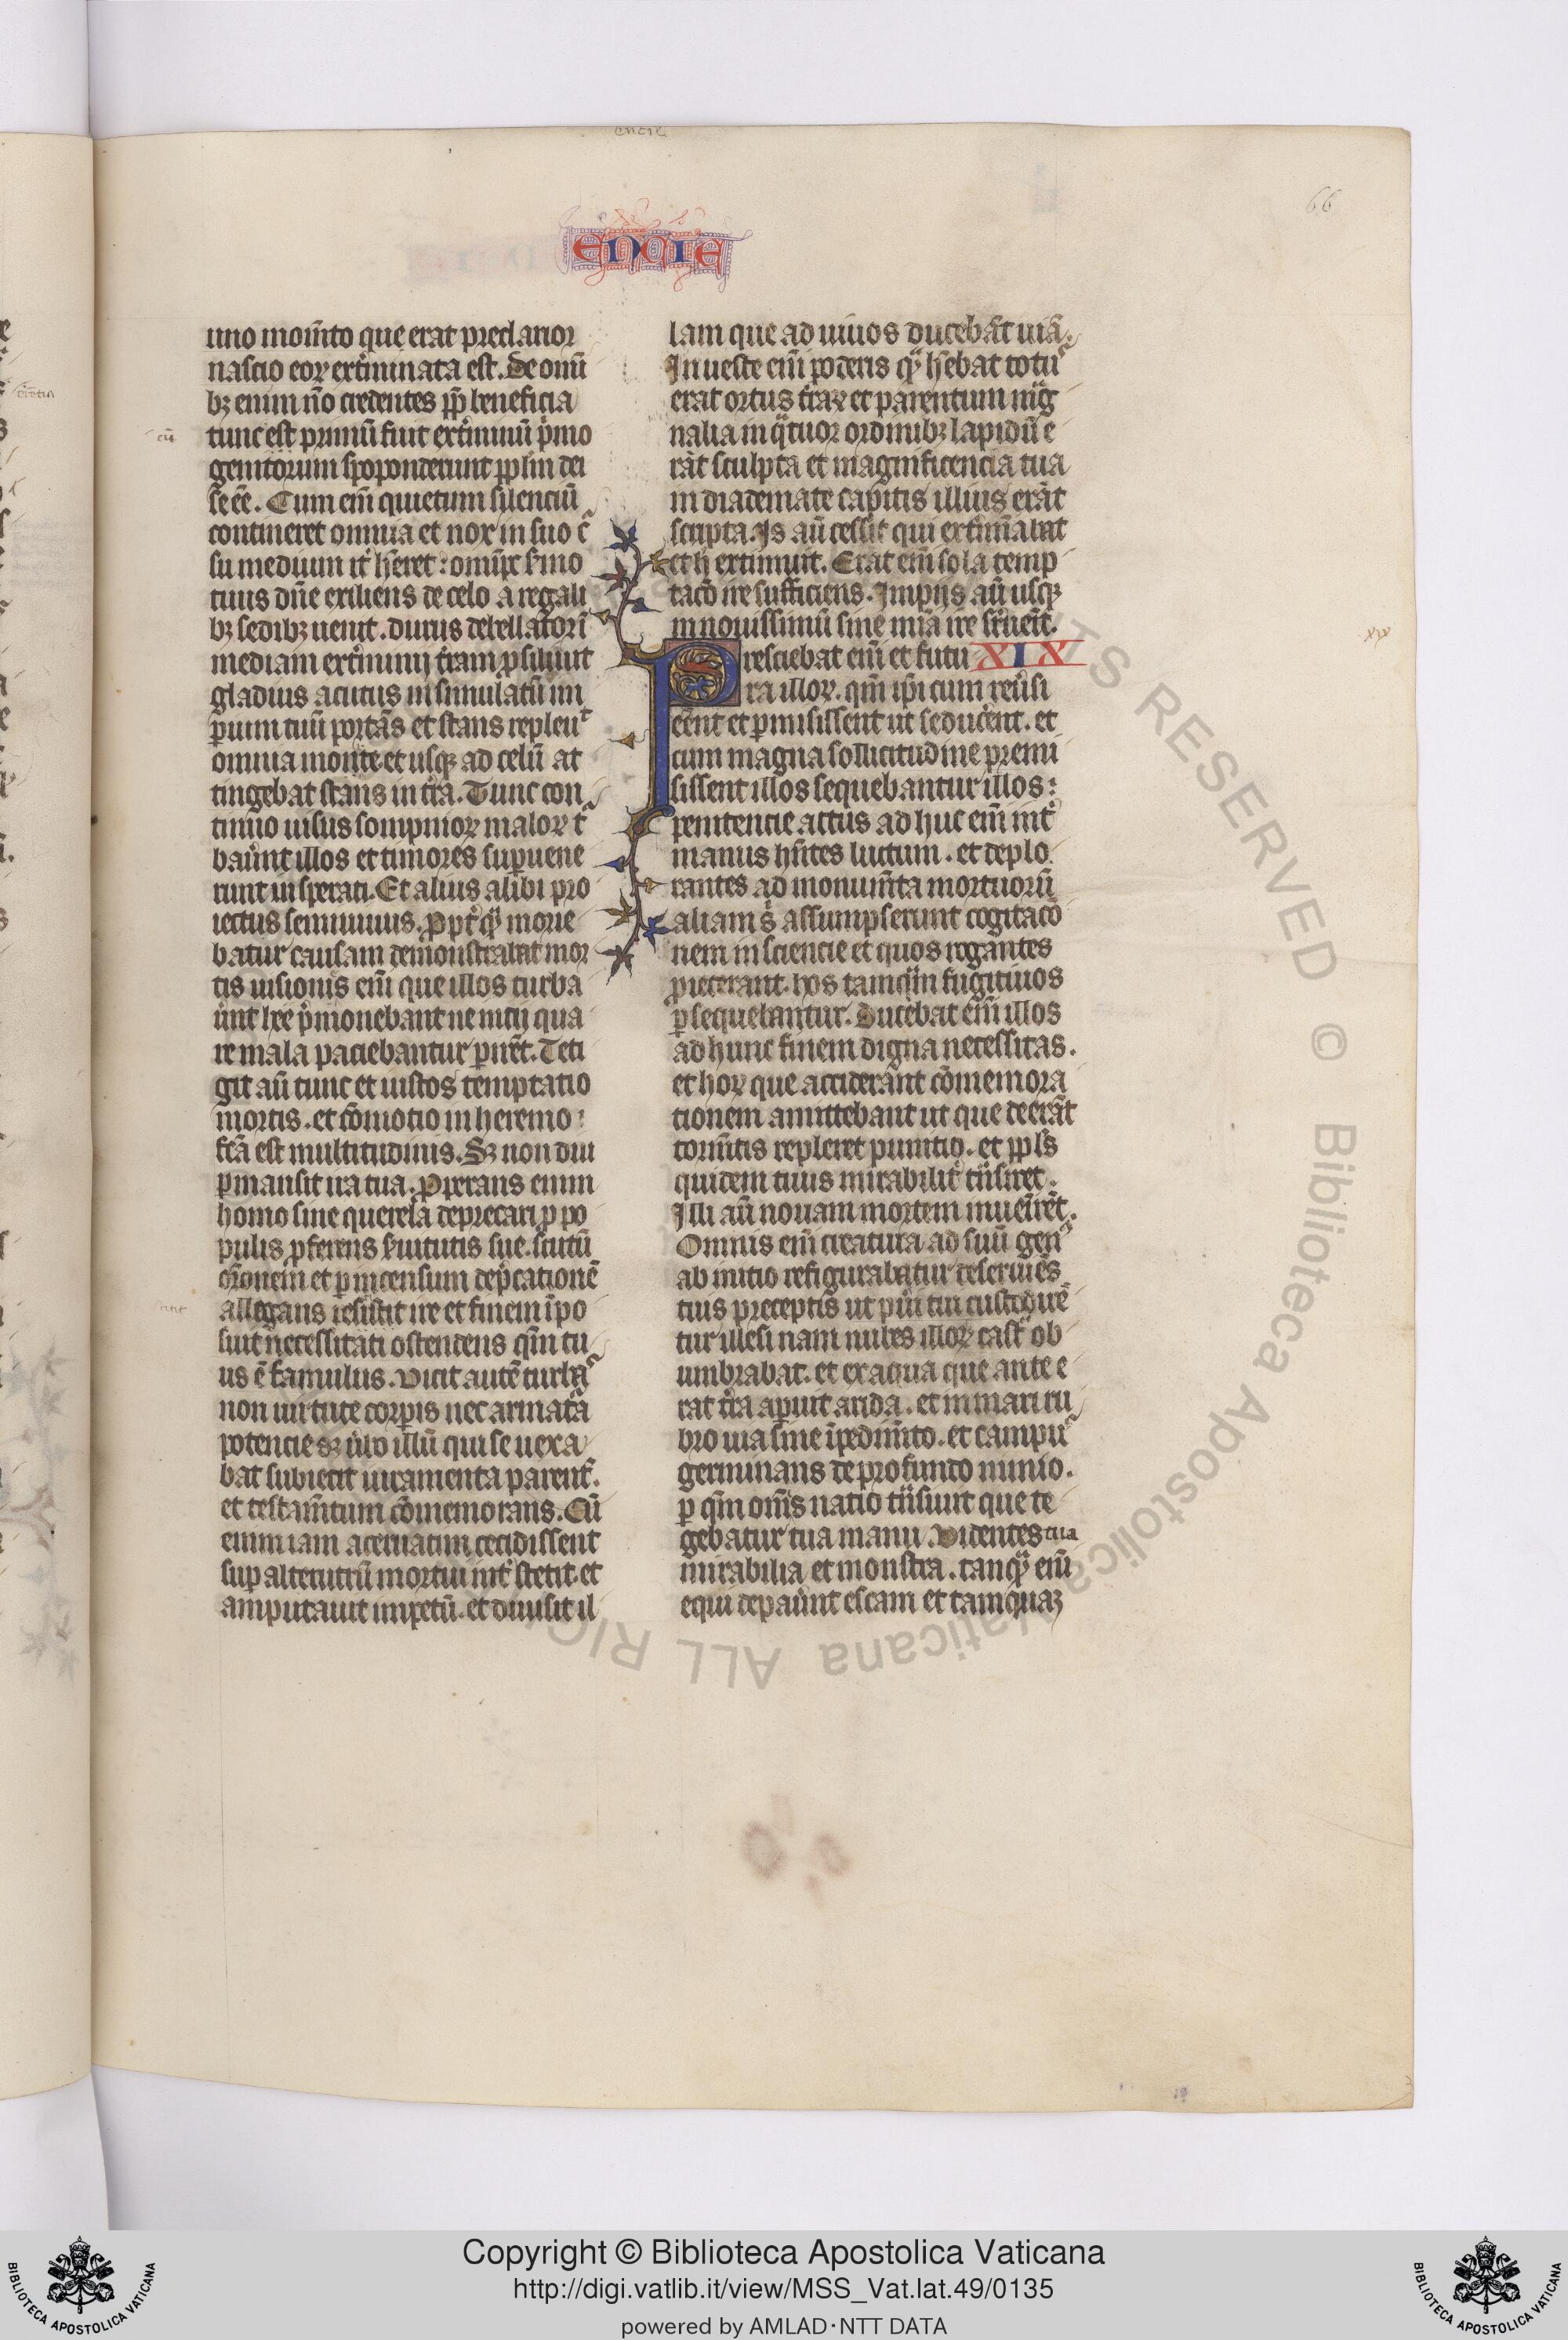 encie
66
ENCIE
uno mom̄to que erat preclarior
nascio eoꝝ ext̓minata est. De om̄i
bꝫ enim nō credentes ꝓp̄ beneficia
tunc est primū fiut ext̓miniū p̓mo
genitorum spoponderunt ppl̄m dei
se eē. Cum em̄ quietum silenciū
contineret omnia et nox in suo c̄
su medium it̓ h̄eret: omīpꝰ s̓mo
tuus dn̄e exiliens de celo a regali
bꝫ sedibꝫ uenit. durus debellatori
mediam ext̓minij t̓ram ꝓsiliuit
gladius acutus insimulatū im
ꝑium tuū portās et stans repleuᷣ
omnia morte et usqꝫ ad celū at
tingebat stans in t̓ra. Tunc con
tinuo uisus sompnioꝝ maloꝝ t̓
bau̓nt illos et timores suꝑuene
runt insperati. Et alius alibi pro
iectus semiuiuus. ꝓpt̓ qͣ moue
batur causam demonstrabat mor
tis uisionis em̄ que illos turba
u̓nt hec p̓monebant ne inscij qua
re mala paciebantur ꝑirēt. Teti
git aū tunc et iustos temptatio
mortis. et cōmotio in heremo:
fcā est multitudinis. Sꝫ non diu
ꝑmansit ira tua. Ꝓperans enim
homo sine querela deprecari ꝓ po
pulis ꝓferens s̓uitutis sue. scutū
ōronem et ꝑ incensum dep̓cationē
allegans resistit ire et finem īpo
suit necessitati ostendens qm̄ tu
us ē famulus. Vicit autē turba
non uirtute corꝑis nec armata
potencie sꝫ u̓bo illū qui se uexa
bat subiecit iuramenta parent̄.
et testam̄tum cōmemorans. Cū
enim iam aceruatim cecidissent
suꝑ alterutrū mortui int̓ stetit. et
amputauit impetū. et diuisit il
cū
lam que ad uiuos ducebāt uiā.
In ueste em̄ poderis qͣ h̄ebat totuᷣ
erat ortus t̓raꝝ et parentum mag
nalia in qͣtuor ordinibꝫ lapidū e
rāt sculpta et magnificencia tua
in diademate capitis illius erāt
scripta. Is aū cessit qui ext̓minabat
et h̄ extimuit. Erat em̄ sola temp
tacō ire sufficiens. Impijs aū usqꝫ
in nouissimū sine mīa ire sr̄uēit.
XIX
Presciebat em̄ et futu
ra illoꝝ. qm̄ ip̄i cum reu̓si
eēnt et ꝑmisissent ut se ducerent. et
cum magna sollicitudine premi
sissent illos sequebantur illos:
penitencie actus ad huc em̄ int̓
manus hn̄tes luctum. et deplo
rantes ad monum̄ta mortuorū
aliam s̓ assumpserunt cogitacō
nem insciencie et quos rogantes
ꝓiecerant. hos tamqͣm fugitiuos
ꝑsequebantur. Ducebat em̄ illos
ad hunc finem digna necessitas.
et hoꝝ que acciderānt cōmemora
tionem amittebant ut que deerāt
torm̄tis repleret punitio. et ppl̄s
quidem tuus mirabilit̓ tͣnsiret.
Illi aū nouam mortem inueīrēt.
Omnis em̄ creatura ad suū gen̓
ab initio refigurabatur deseruiēs
tuis preceptis ut pu̓i tui custodirē
tur illesi nam nubes illoꝝ castͣ ob
umbrabat. et ex aqua que ante e
rat t̓ra apparuit arida. et in mari ru
bro uia sine īpedim̄to. et campuᷣ
germinans de profundo nimio.
ꝑ qm̄ om̄is natio tͣnsiuit que te
gebatur tua manu. Videntes tua
mirabilia et monstra. tanqͣ em̄
equi depau̓nt escam et tamquaꝫ
Copyright © Biblioteca Apostolica Vaticana
http://digi.vatlib.it/view/MSS_Vat.lat.49/0135
powered by AMLAD·NTT DATA
BIBLIOTECA APOSTOLICA VATICANA
BIBLIOTECA APOSTOLICA VATICANA